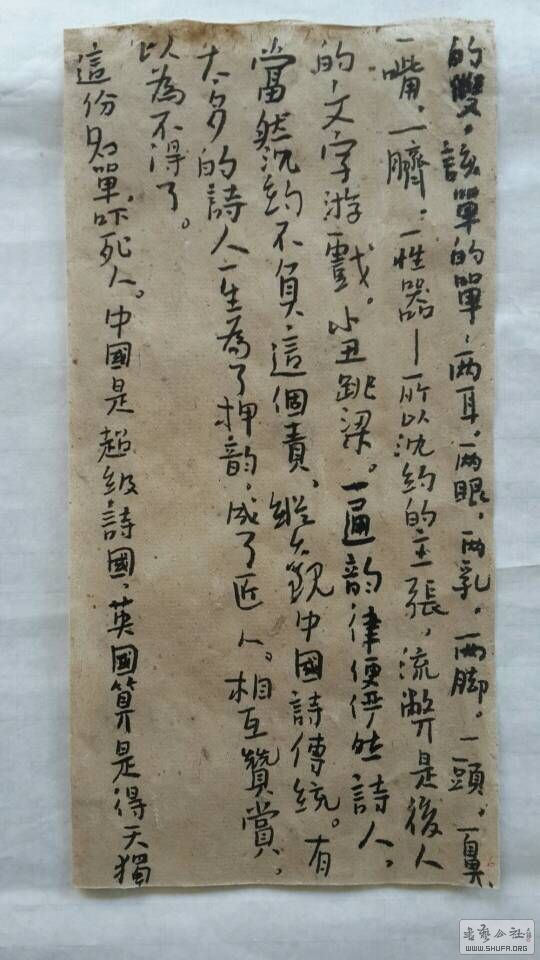 的雙，該單的單，兩耳。兩眼。兩乳。兩脚。一頭。一鼻、
一嘴，一臍，一性器—所以沈約的主張，流弊是後人
的文字游戲。小丑跳梁。一通韵律便儼然詩人。
當然沈約不負這個責、縱觀中國詩傳統。有
太多的詩人一生為了押韵，成了匠人。相互贊賞，
以為不得了。
這份名單，吓死人。中國是超級詩國、英國算是得天獨
WWW.SHUFA.ORG